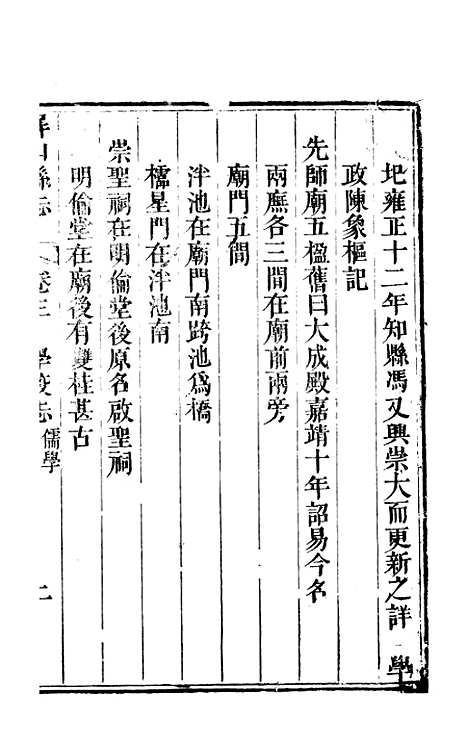 圯雍正十二年知縣馮又興崇大而更新之詳　學
政陳象樞記
先師廟五楹舊曰大成殿嘉靖十年詔易今名
兩廡各三間在廟前兩旁
廟門五間
泮池在廟門南跨池為橋
櫺星門在泮池南
崇聖祠在明倫堂後原名啟聖祠
明倫堂在廟後有雙桂甚古
屏山縣志　卷三　學校志　儒學　二